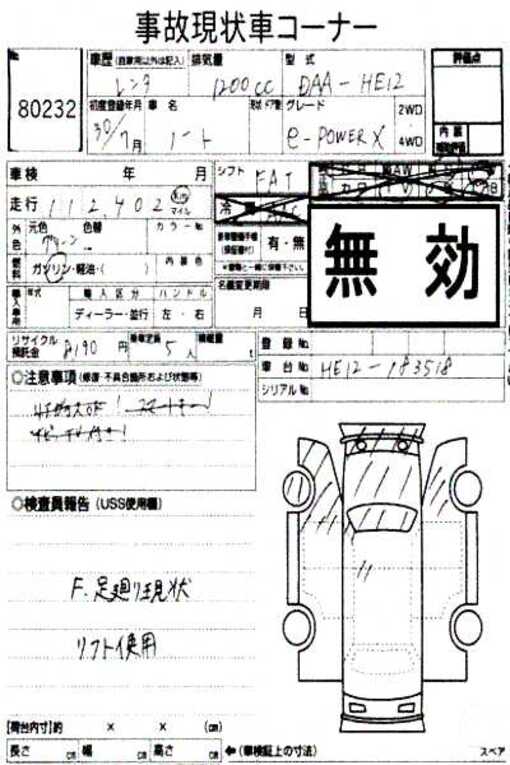 事故現状車コーナー
No. 80232
車歴(自家用以外は記入) レンタ
排気量 1200cc
型式 DAA-HE12
評価点
初度登録年月 30/7月
車名 ノート
形状 ドア数
グレード e-POWER X
2WD
4WD
内装
車検 年 月
シフト FAT
走行 112,402 km マイル
冷
外色 元色 グリーン 色替
カラーNo.
有・無
無効
燃料 ガソリン・軽油・( )
内装色
名義変更期限 月 日
輸入車用 年式 輸入区分 ハンドル
ディーラー・並行 左・右
リサイクル預託金 8190円
乗車定員 5人
積載量 t
登録No.
車台No. HE12-183518
シリアルNo.
◇注意事項(修復・不具合箇所および状態等)
◇検査員報告(USS使用欄)
F.足廻り現状
リフト使用
[荷台内寸]約 × × (cm)
長さ cm 幅 cm 高さ cm
←(車検証上の寸法)
スペア